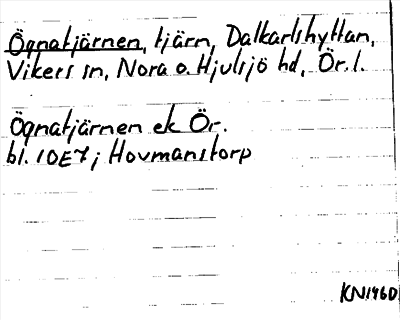 Ögnatjärnen, tjärn, Dalkarlshyttan,
Vikers sn, Nora o. Hjulsjö hd, Ör. l.
Ögnatjärnen ek Ör.
bl. 10E7; Hovmanstorp
KN1960